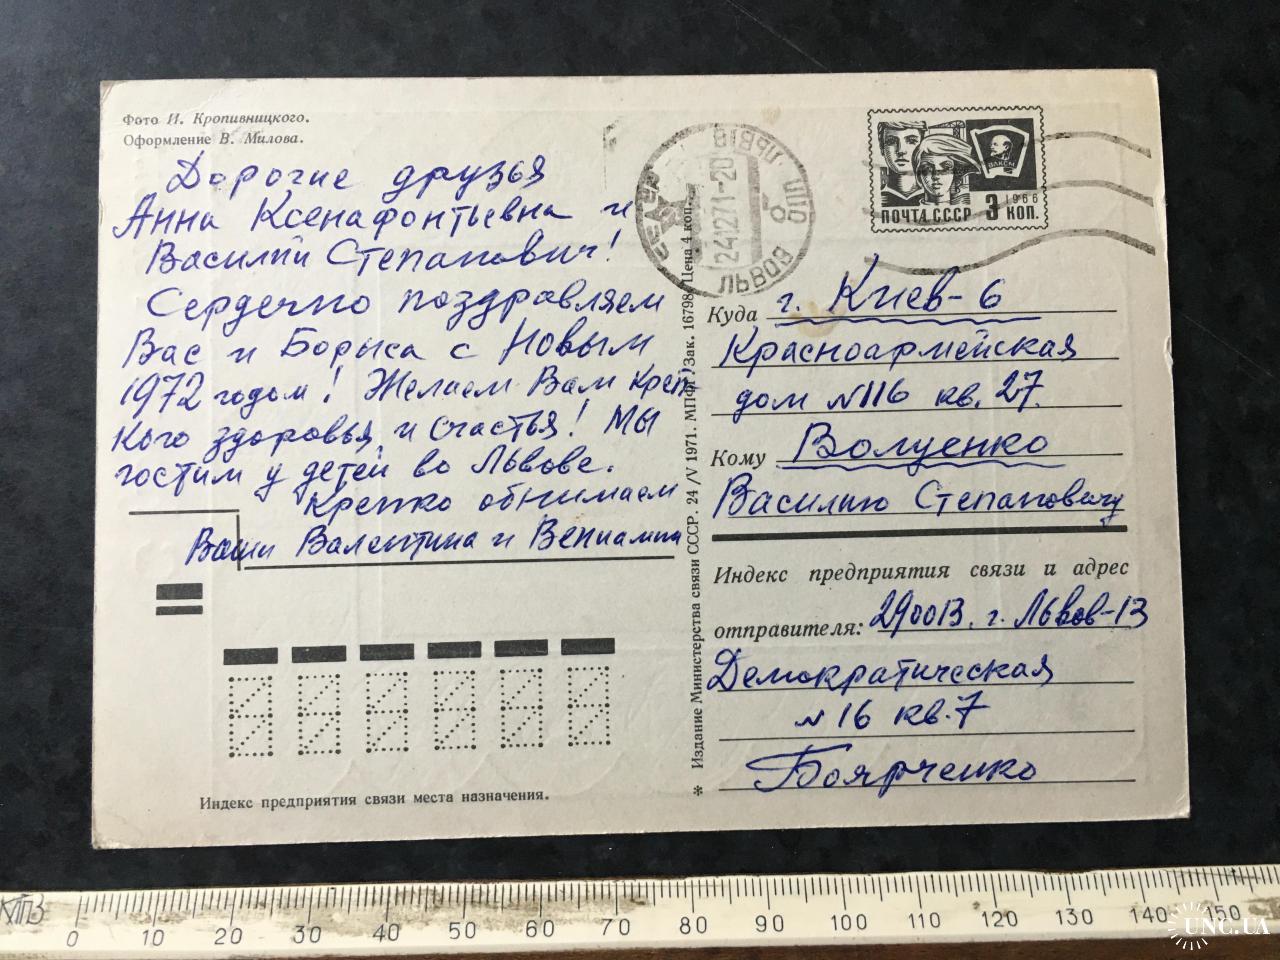 Фото И. Кропивницкого.
Оформление В. Милова.
Дорогие друзья
Анна Ксенафонтьевна и
Василий Степанович!
Сердечно поздравляем
Вас и Бориса с Новым
1972 годом! Желаем Вам креп
кого здоровья и счастья! Мы
гостим у детей во Львове.
Крепко обнимаем
Ваши Валентина и Вениамин
Индекс предприятия связи места назначения.
* Издание Министерства связи СССР. 24/V 1971. МПФГ. Зак. 16798. Цена 4 коп.
ЛЬВІВ
ПШО
24 12 71-20
ЛЬВОВ
ВЛКСМ
1966
ПОЧТА СССР 3 КОП.
Куда г. Киев-6
Красноармейская
дом №116 кв. 27.
Кому Волуенко
Василию Степановичу
Индекс предприятия связи и адрес
отправителя: 290013. г. Львов-13
Демократическая
№ 16 кв. 7
Боярченко
КТВ
0 10 20 30 40 50 60 70 80 90 100 110 120 130 140 150
UNC.UA